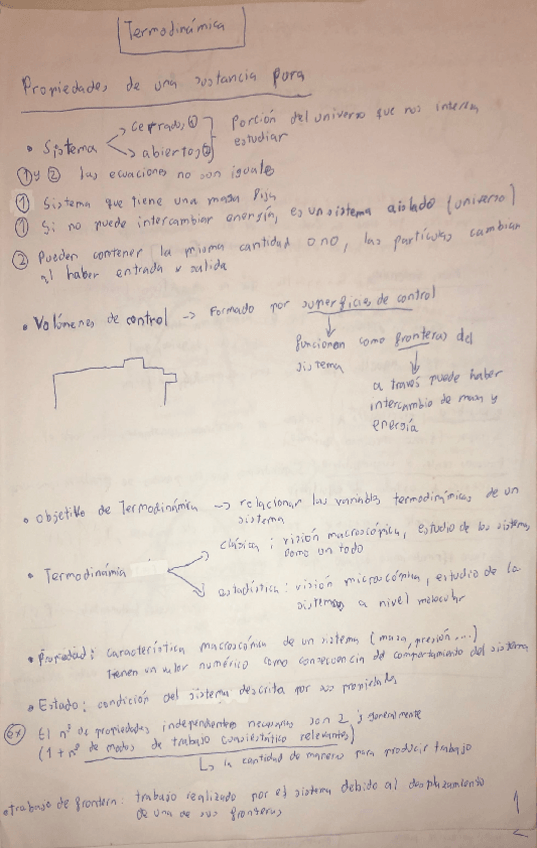 Termodinámica
Propiedades de una sustancia pura
• Sistema → cerrados ① → abiertos ② } porción del universo que nos interesa
estudiar
① y ② Las ecuaciones no son iguales
① Sistema que tiene una masa fija
① Si no puede intercambiar energía, es un sistema aislado (universo)
② Pueden contener la misma cantidad o no, las partículas cambian
al haber entrada y salida
• Volúmenes de control → Formado por superficies de control
funcionan como fronteras del
sistema
a través puede haber
intercambio de masa y
energía
• Objetivo de Termodinámica → relacionar las variables termodinámicas de un
sistema
clásica: visión macroscópica, estudio de los sistemas
como un todo
• Termodinámia
estadística: visión microscópica, estudio de la
sistemas a nivel molecular
• Propiedad: característica macroscópica de un sistema (masa, presión...)
tienen un valor numérico como consecuencia del comportamiento del sistema
• Estado: condición del sistema descrita por sus propiedades
El nº de propiedades independientes necesarias son 2, generalmente
(1 + nº de modos de trabajo cuasiestático relevantes)
↳ la cantidad de maneras para producir trabajo
• trabajo de frontera: trabajo realizado por el sistema debido al desplazamiento
de una de sus fronteras
1